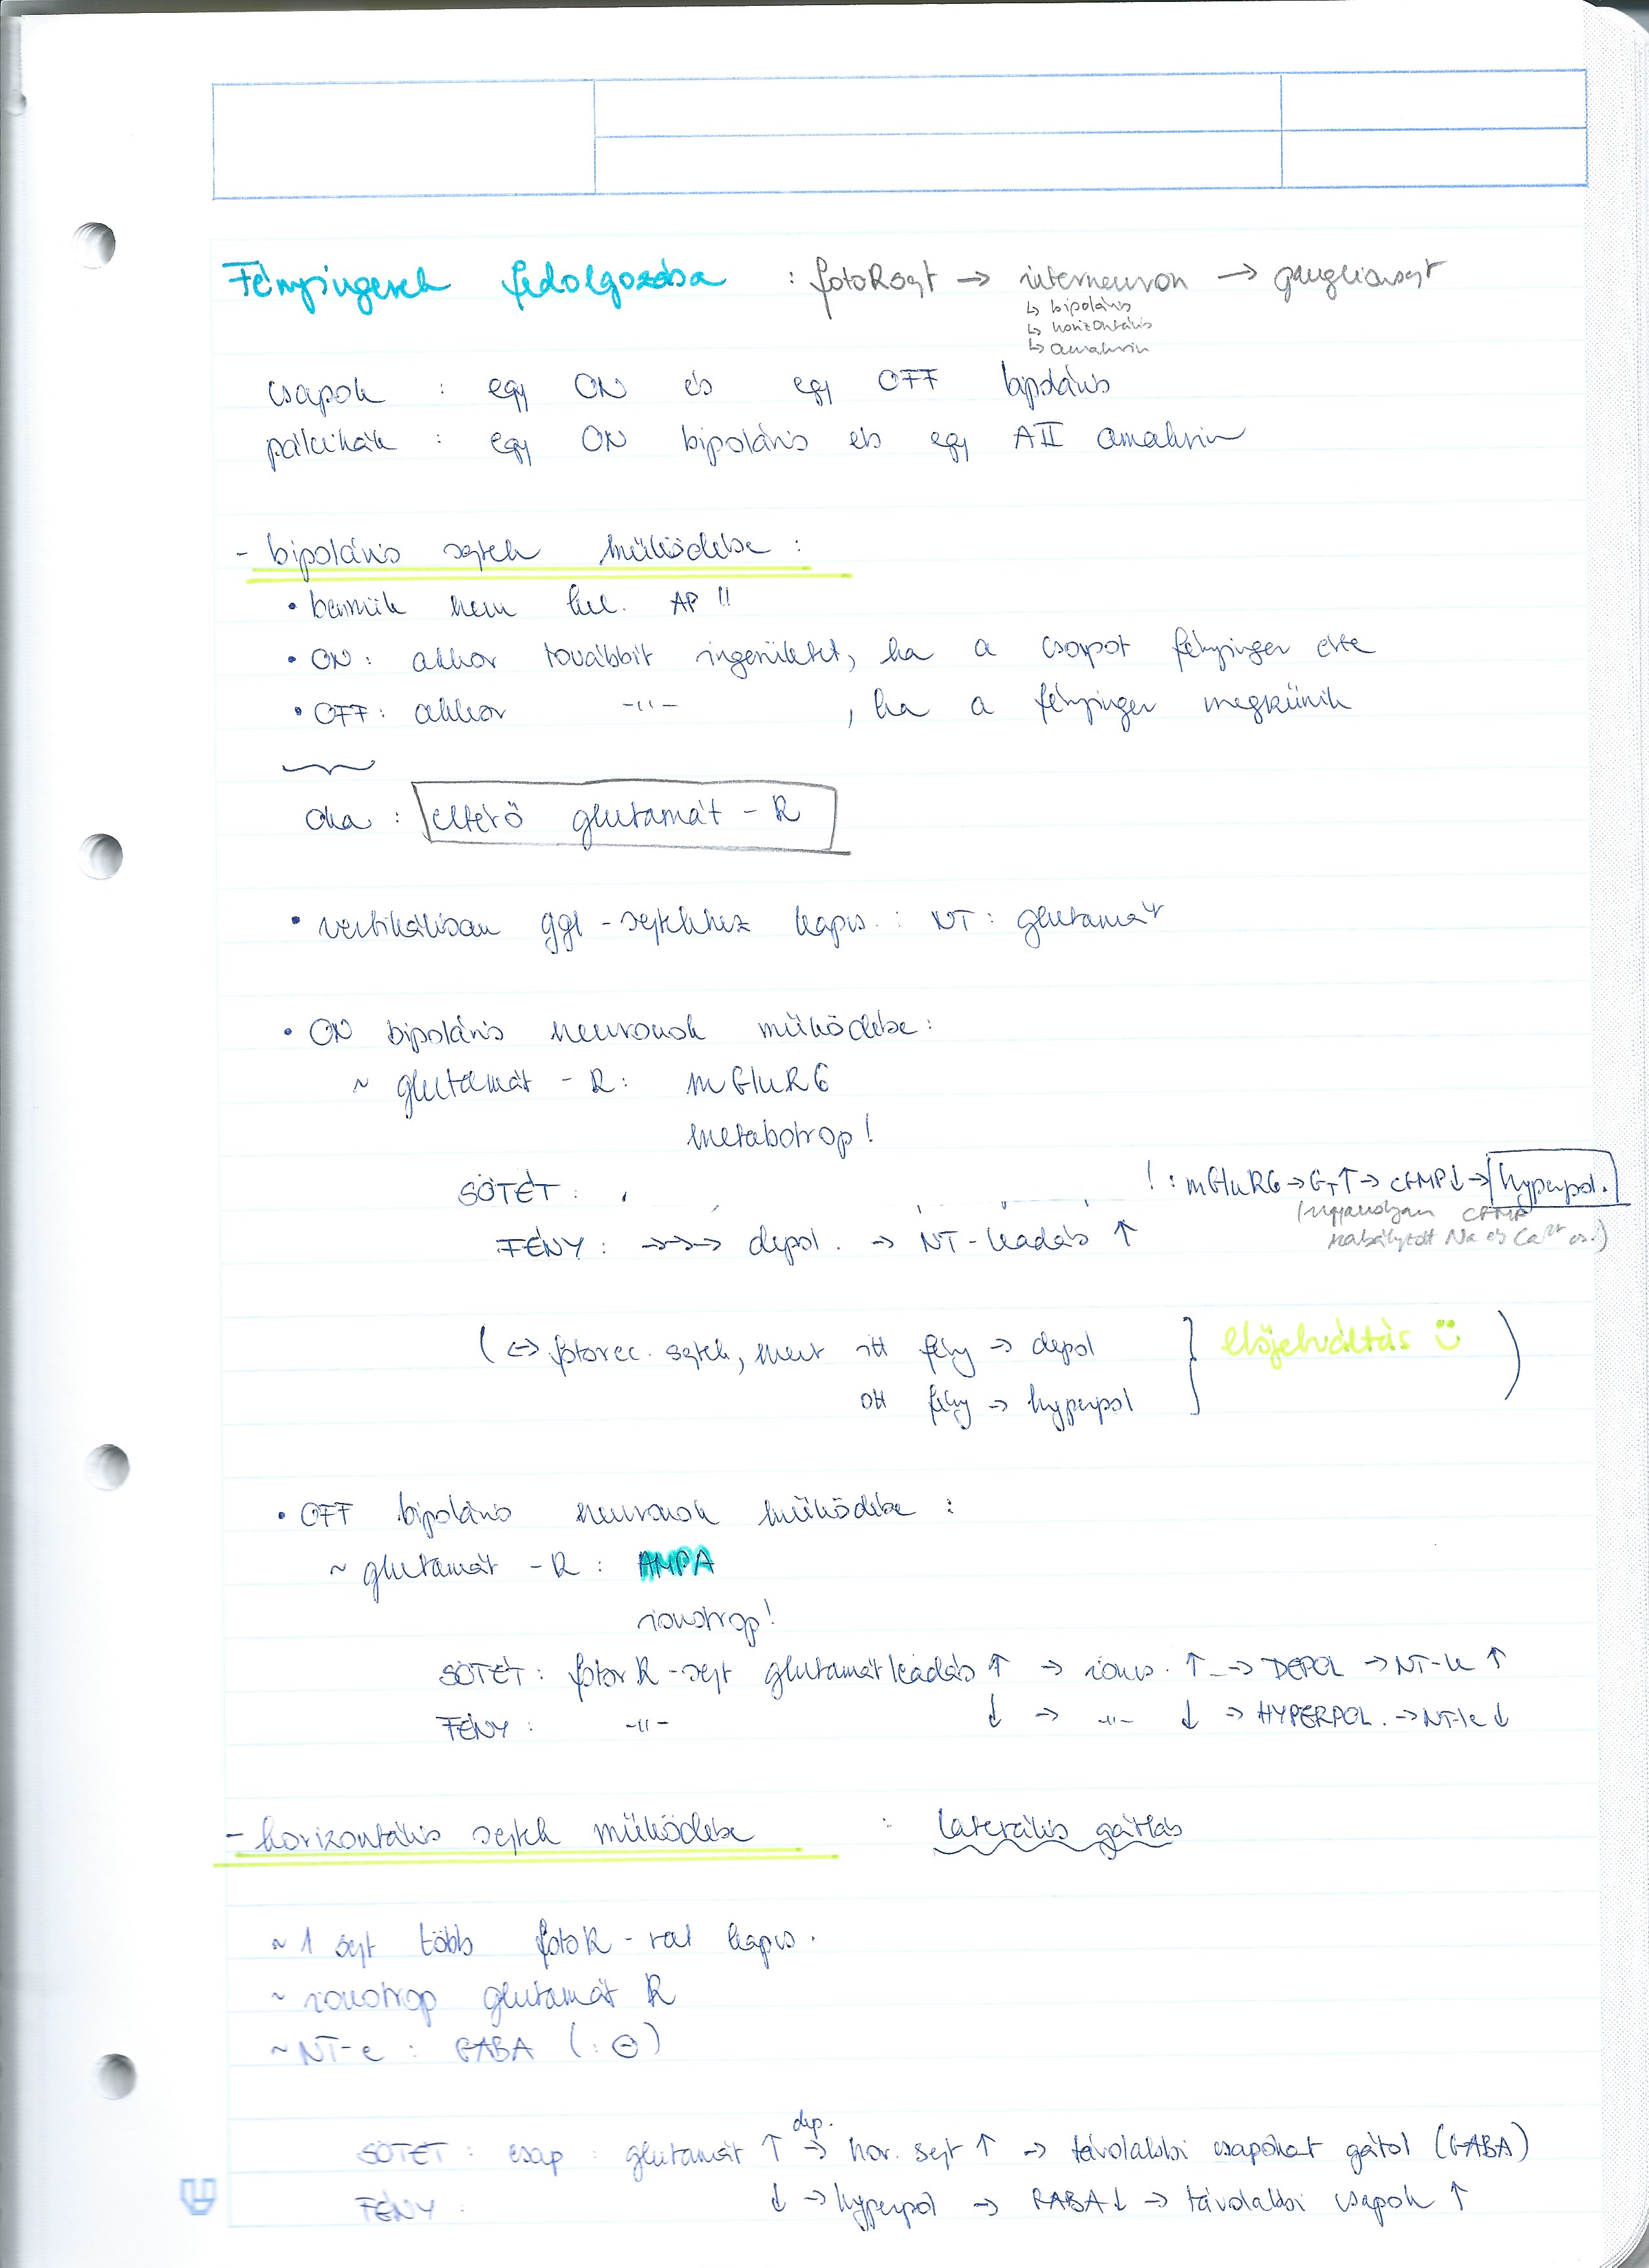 Fényingerek feldolgozása : fotoRsejt → interneuron → ganglionsejt
↳ bipoláris
↳ horizontális
↳ amakrin
csapok : egy ON és egy OFF bipoláris
pálcikák : egy ON bipoláris és egy AII amakrin
- bipoláris sejtek működése :
• bennük nem kel. AP !!
• ON: akkor továbbít ingerületet, ha a csapot fényinger érte
• OFF: akkor -"- , ha a fényinger megszűnik
oka : eltérő glutamát - R
• vertikálisan ggl - sejtekhez kapcs. : NT : glutamát
• ON bipoláris neuronok működése :
~ glutamát - R : mGluR6
metabotrop !
SÖTÉT : ! : mGluR6 → GT↑ → cGMP↓ → hyperpol.
(ugyanolyan cGMP
szabályzott Na és Ca²⁺ cs.)
FÉNY : →→→ depol. → NT-leadás ↑
(↔ fotorec. sejtek, mert itt fény → depol } előjelváltás )
ott fény → hyperpol
• OFF bipoláris neuronok működése :
~ glutamát - R : AMPA
ionotrop !
SÖTÉT : fotoR-sejt glutamátleadás ↑ → ioncs. ↑ → DEPOL → NT-le ↑
FÉNY : -"- ↓ → -"- ↓ → HYPERPOL. → NT-le ↓
- horizontális sejtek működése : laterális gátlás
~ 1 sejt több fotoR - ral kapcs.
~ ionotrop glutamát R
~ NT-e : GABA (: ⊖)
SÖTÉT : csap : glutamát ↑ dep. → hor. sejt ↑ → távolabbi csapokat gátol (GABA)
FÉNY : ↓ → hyperpol → GABA↓ → távolabbi csapok ↑